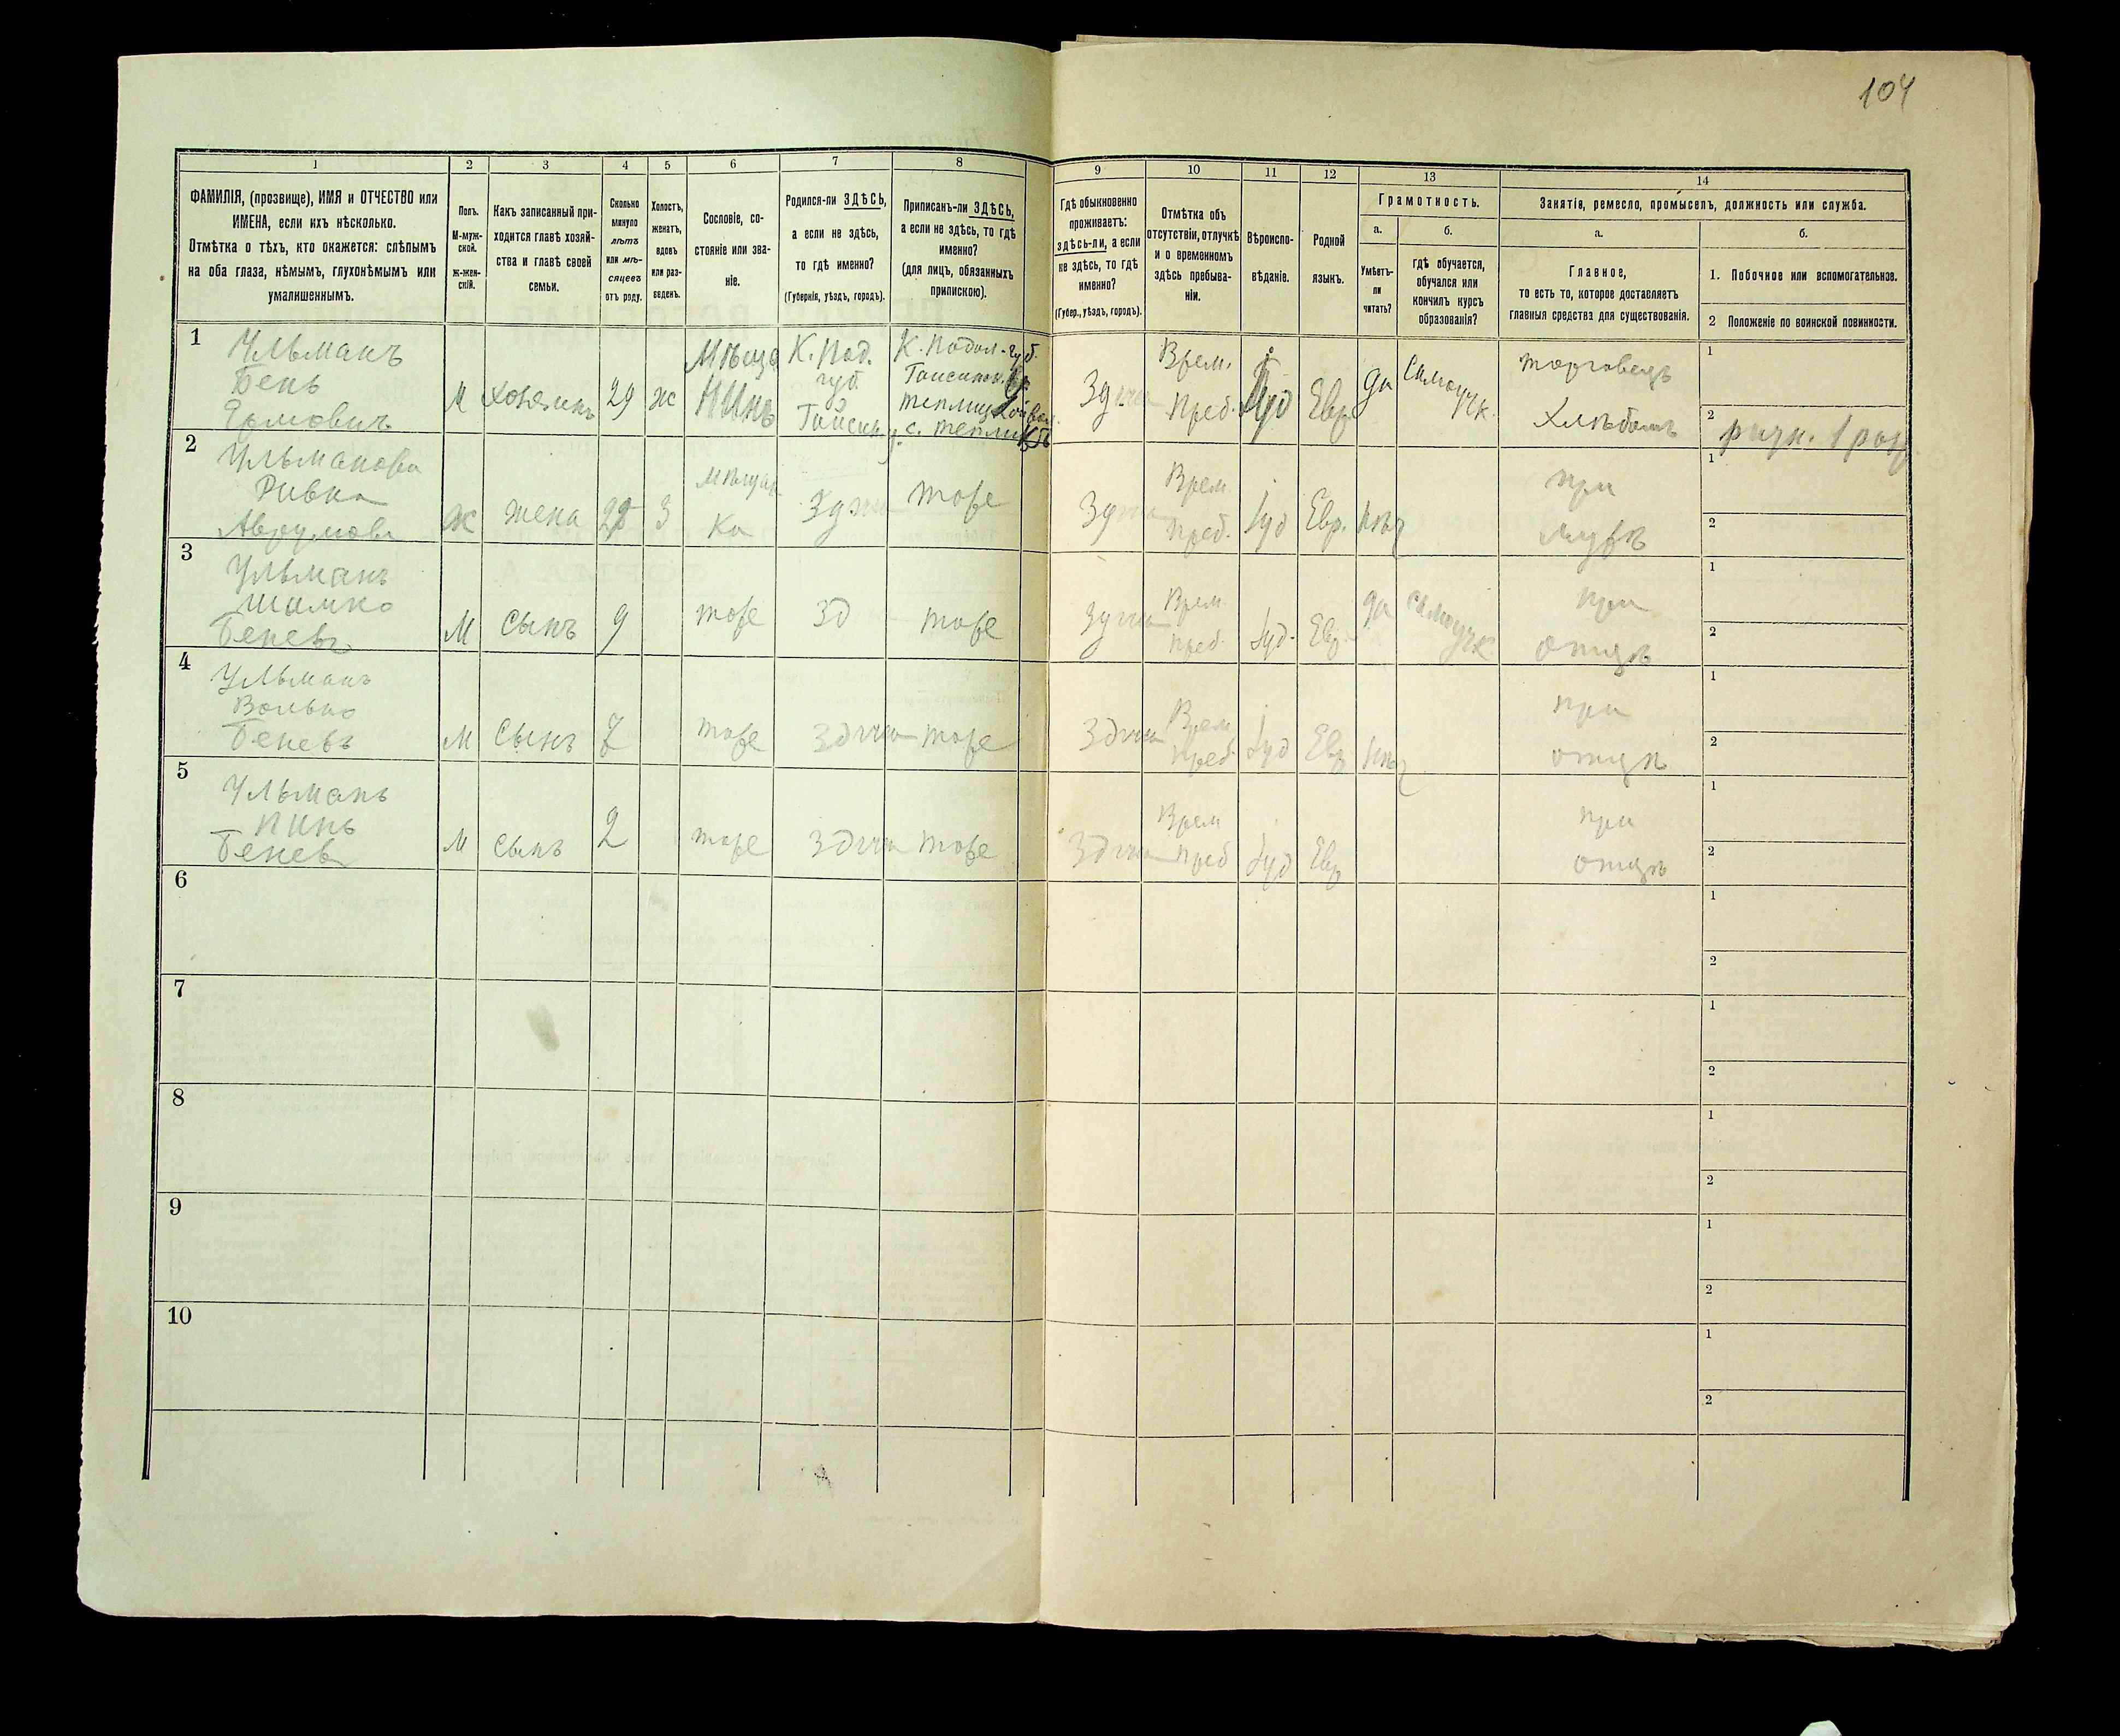 104
1 2 3 4 5 6 7 8 9 10 11 12 13 14
ФАМИЛІЯ, (прозвище), ИМЯ и ОТЧЕСТВО или
ИМЕНА, если ихъ нѣсколько.
Отмѣтка о тѣхъ, кто окажется: слѣпымъ
на оба глаза, нѣмымъ, глухонѣмымъ или
умалишеннымъ.
Полъ.
М-муж-
ской.
Ж-жен-
скій.
Какъ записанный при-
ходится главѣ хозяй-
ства и главѣ своей
семьи.
Сколько
минуло
лѣтъ
или мѣ-
сяцевъ
отъ роду.
Холостъ,
женатъ,
вдовъ
или раз-
веденъ.
Сословіе, со-
стояніе или зва-
ніе.
Родился-ли ЗДѢСЬ,
а если не здѣсь,
то гдѣ именно?
(Губернія, уѣздъ, городъ).
Приписанъ-ли ЗДѢСЬ,
а если не здѣсь, то гдѣ
именно?
(для лицъ, обязанныхъ
припискою).
Гдѣ обыкновенно
проживаетъ:
здѣсь-ли, а если
не здѣсь, то гдѣ
именно?
(Губер., уѣздъ, городъ).
Отмѣтка объ
отсутствіи, отлучкѣ
и о временномъ
здѣсь пребыва-
ніи.
Вѣроиспо-
вѣданіе.
Родной
языкъ.
Грамотность.
а.
Умѣетъ-
ли
читать?
б.
гдѣ обучается,
обучался или
кончилъ курсъ
образованія?
Занятіе, ремесло, промыселъ, должность или служба.
а.
Главное,
то есть то, которое доставляетъ
главныя средства для существованія.
б.
1. Побочное или вспомогательное.
2 Положеніе по воинской повинности.
1
Ульманъ
Бень
Ярмовичъ
М хозяинъ 29 ж
Мѣща
нинъ
К. Под.
губ.
Гайсин. у.
К. Подол. губ.
с. Теплик
Врем.
Преб.
Іуд Евр да Самоучк.
торговецъ
Хлѣбомъ
1
2
2
Ульманова
Ривка
Аврумова
Ж жена 3
мѣщан
ка
тоже
Врем.
преб.
Іуд Евр. нѣт
при
мужѣ
1
2
3
Ульманъ
Шимко
Беневъ
М сынъ 9 тоже Зд тоже
Врем.
преб.
Іуд. Евр. да самоучк
при
отцѣ
1
2
4
Ульманъ
Волько
Беневъ
М сынъ 7 тоже тоже
Врем
преб.
Іуд Евр нѣт
при
отцѣ
1
2
5
Ульманъ
Пинь
Беневъ
М сынъ 2 тоже тоже
Врем
преб
Іуд Евр
при
отцѣ
1
2
6
1
2
7
1
2
8
1
2
9
1
2
10
1
2